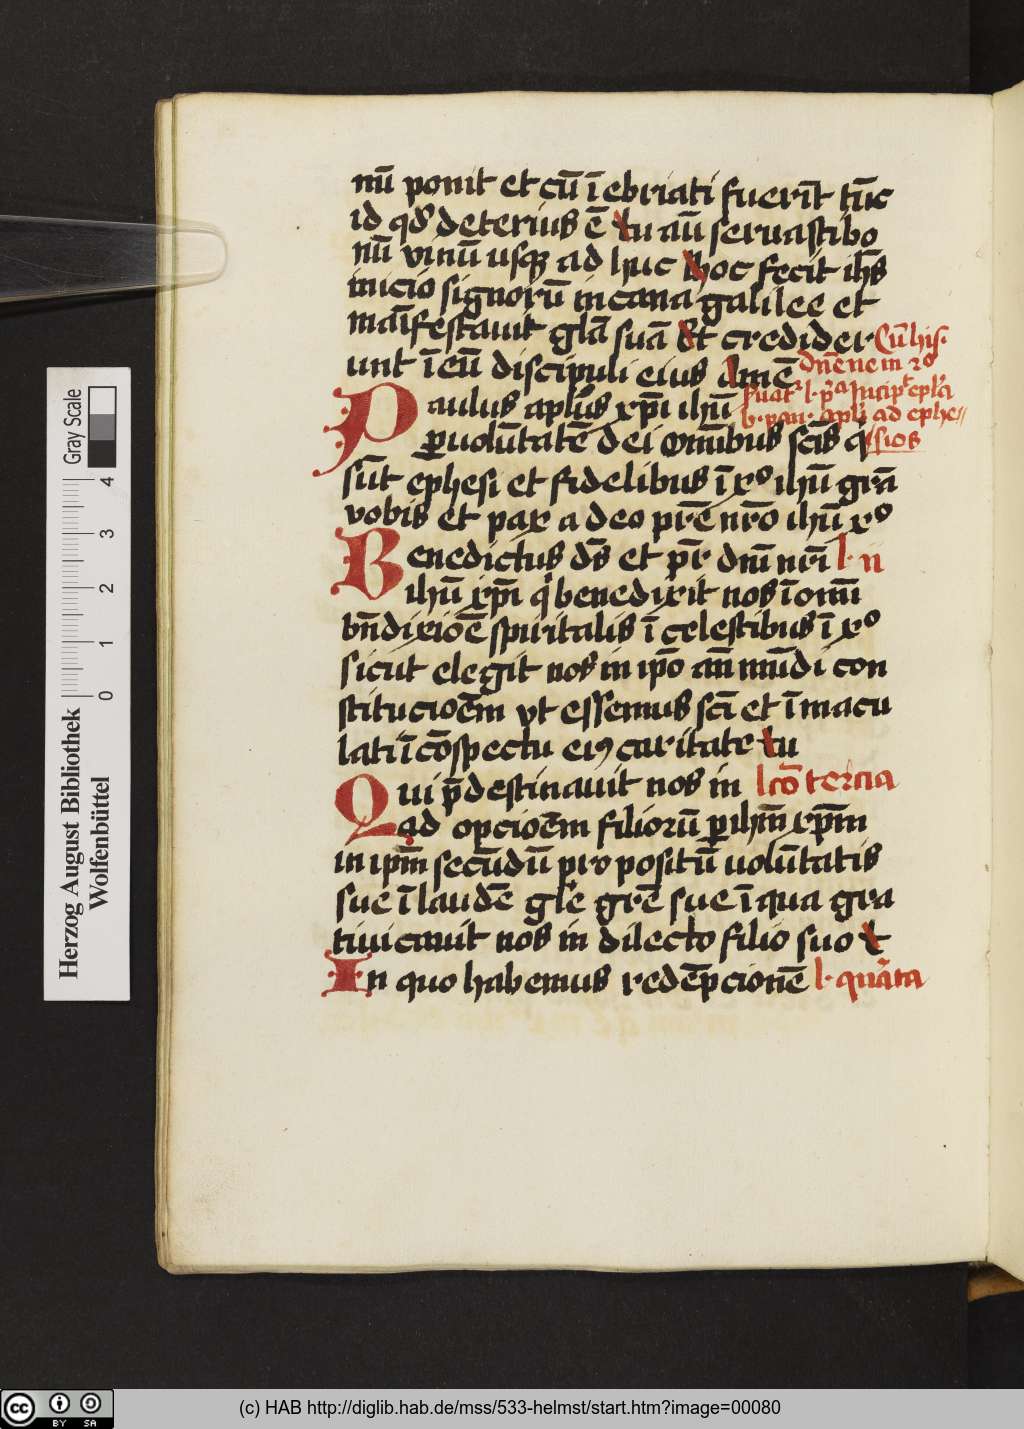 nu̅ ponit et cu̅ i̅ebriati fueri̅t tu̅c
id qd̕ deterius e̅ tu au̅ seruastibo
nu̅ vinu̅ usqꝫ ad huc hoc fecit ih̅s
inicio signoru̅ in cana galilee et
mai̅festauit gla̅ sua̅ Et credider
unt i̅ eu̅ discipuli eius ame̅
Cu̅ his.
dn̅e ne in ro
Paulus aplu̅s xp̅i ihu̅
l. pa Incipt epla
b. pau. apli ad ephe〃
ꝑ uolu̅tate̅ dei omi̅bus sc̅is q
sios
su̅t ephesi et fidelibus i̅ xo ihu̅ gra̅
vobis et pax a deo pre̅ nro̅ ihu̅ xo
Benedictus ds̅ et pr̅ dni̅ nri̅ l. ii
ihu̅ xp̅i q benedixit nos i̅ omi̅
bn̅dixioe̅ spiritalis i̅ celestibus i̅ xo
sicut elegit nos in ipo̅ an̅ mu̅di con
stitucioe̅m vt essemus sc̅i et i̅macu
lati i̅ co̅spectu eiꝯ caritate tu
Qui p̅destinauit nos in lco̅ tercia
ad opcioe̅m filioru̅ ꝑ ihm̅ xpm̅
in ipm̅ secu̅du̅ pro positu̅ uolu̅tatis
sue i̅ laude̅ gle̅ gre̅ sue i̅ qua gra
tiuicauit nos in dilecto filio suo t
In quo habemus rede̅pcione̅ l. qua̅ta
Gray Scale
4
3
2
1
0
Herzog August Bibliothek
Wolfenbüttel
cc BY SA
(c) HAB http://diglib.hab.de/mss/533-helmst/start.htm?image=00080